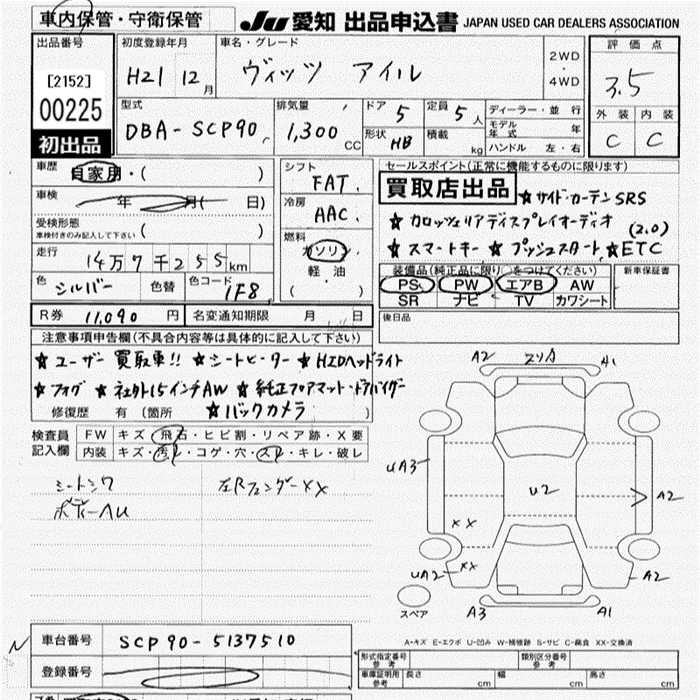 車内保管・守衛保管 JU 愛知 出品申込書 JAPAN USED CAR DEALERS ASSOCIATION
出品番号 初度登録年月 車名・グレード 2WD ・ 4WD 評価点
[2152] H21 12月 ヴィッツ アイル 3.5
00225 型式 排気量 ドア 5 定員 5人 ディーラー・並行 外装 内装
初出品 DBA-SCP90 1,300 CC 形状 HB 積載 kg モデル年式 年 C C
ハンドル 左・右
車歴 自家用・( ) シフト FAT セールスポイント(正常に機能するものに限ります)
車検 年 月( 日) 冷房 AAC 買取店出品 ★サイド・カーテンSRS
受検形態 ( ) ★カロッツェリアディスプレイオーディオ
車検付きのみ記入して下さい 燃料 ガソリン ★スマートキー ★プッシュスタート ★ETC (2.0)
走行 14万7千255km 軽油 装備品(純正品に限り○をつけてください) 新車保証書
色 シルバー 色替 色コード 1F8 ・( ) PS PW エアB AW
SR ナビ TV カワシート
R券 11,090円 名変通知期限 月 日 後日品
注意事項申告欄(不具合内容等は具体的に記入して下さい)
★ユーザー買取車!! ★シートヒーター ★HIDヘッドライト
★フォグ ★社外15インチAW ★純正フロアマット・ドアバイザー
修復歴 有 (箇所 ★バックカメラ )
検査員 FW キズ・飛石・ヒビ割・リペア跡・X要
記入欄 内装 キズ・汚レ・コゲ・穴・スレ・キレ・破レ
左Rフェンダーxx
ボデーAU
A2 A1
UA3 U2 A2
xx
UA2 xx A2
スペア A3 A1
車台番号 SCP90-5137510
A-キズ E-エクボ U-凹み W-補修跡 S-サビ C-腐食 XX-交換済
登録番号
型式指定番号 参考 類別区分番号 参考
車庫証明用 参考 長さ cm 幅 cm 高さ cm